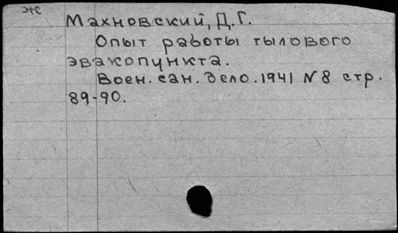 жс
Махновский, Д.Г.
Опыт работы тылового
эвакопункта.
Воен. сан. дело. 1941 N8 стр.
89-90.